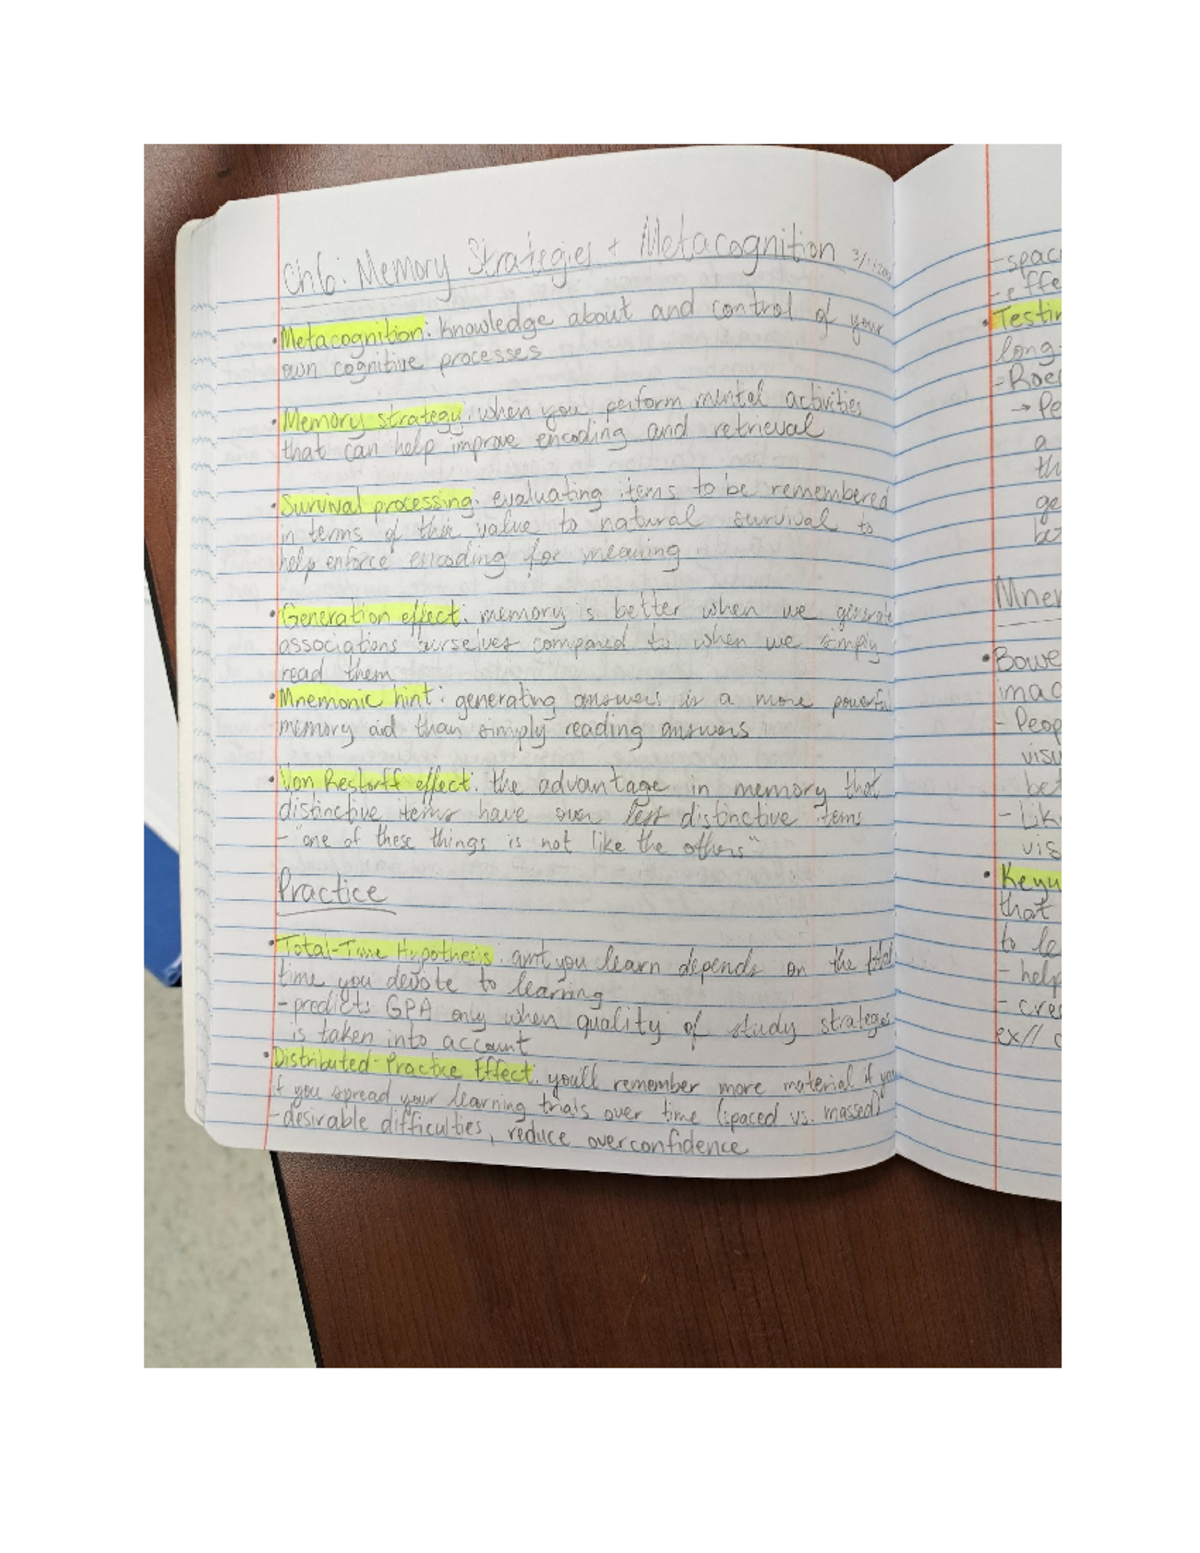 Ch6: Memory Strategies + Metacognition
• Metacognition: knowledge about and control of your
own cognitive processes
• Memory strategy: when you perform mental activities
that can help improve encoding and retrieval
• Survival processing: evaluating items to be remembered
in terms of their value to natural survival to
help enforce encoding for meaning
• Generation effect: memory is better when we generate
associations ourselves compared to when we simply
read them
• Mnemonic hint: generating answers is a more powerful
memory aid than simply reading answers
• Von Restorff effect: the advantage in memory that
distinctive items have over less distinctive items
- "one of these things is not like the others"
Practice
• Total-Time Hypothesis: amt you learn depends on the total
time you devote to learning
- predicts GPA only when quality of study strateges
is taken into account
• Distributed-Practice Effect: you'll remember more material if you
if you spread your learning trials over time (spaced vs. massed)
- desirable difficulties, reduce overconfidence
- spac
- effe
• Testin
long-
- Roe
→ Pe
a
th
ge
be
Mnem
• Bowe
imag
- Peop
visu
bet
- Lik
vis
• Keyw
that
to le
- help
- crea
ex//